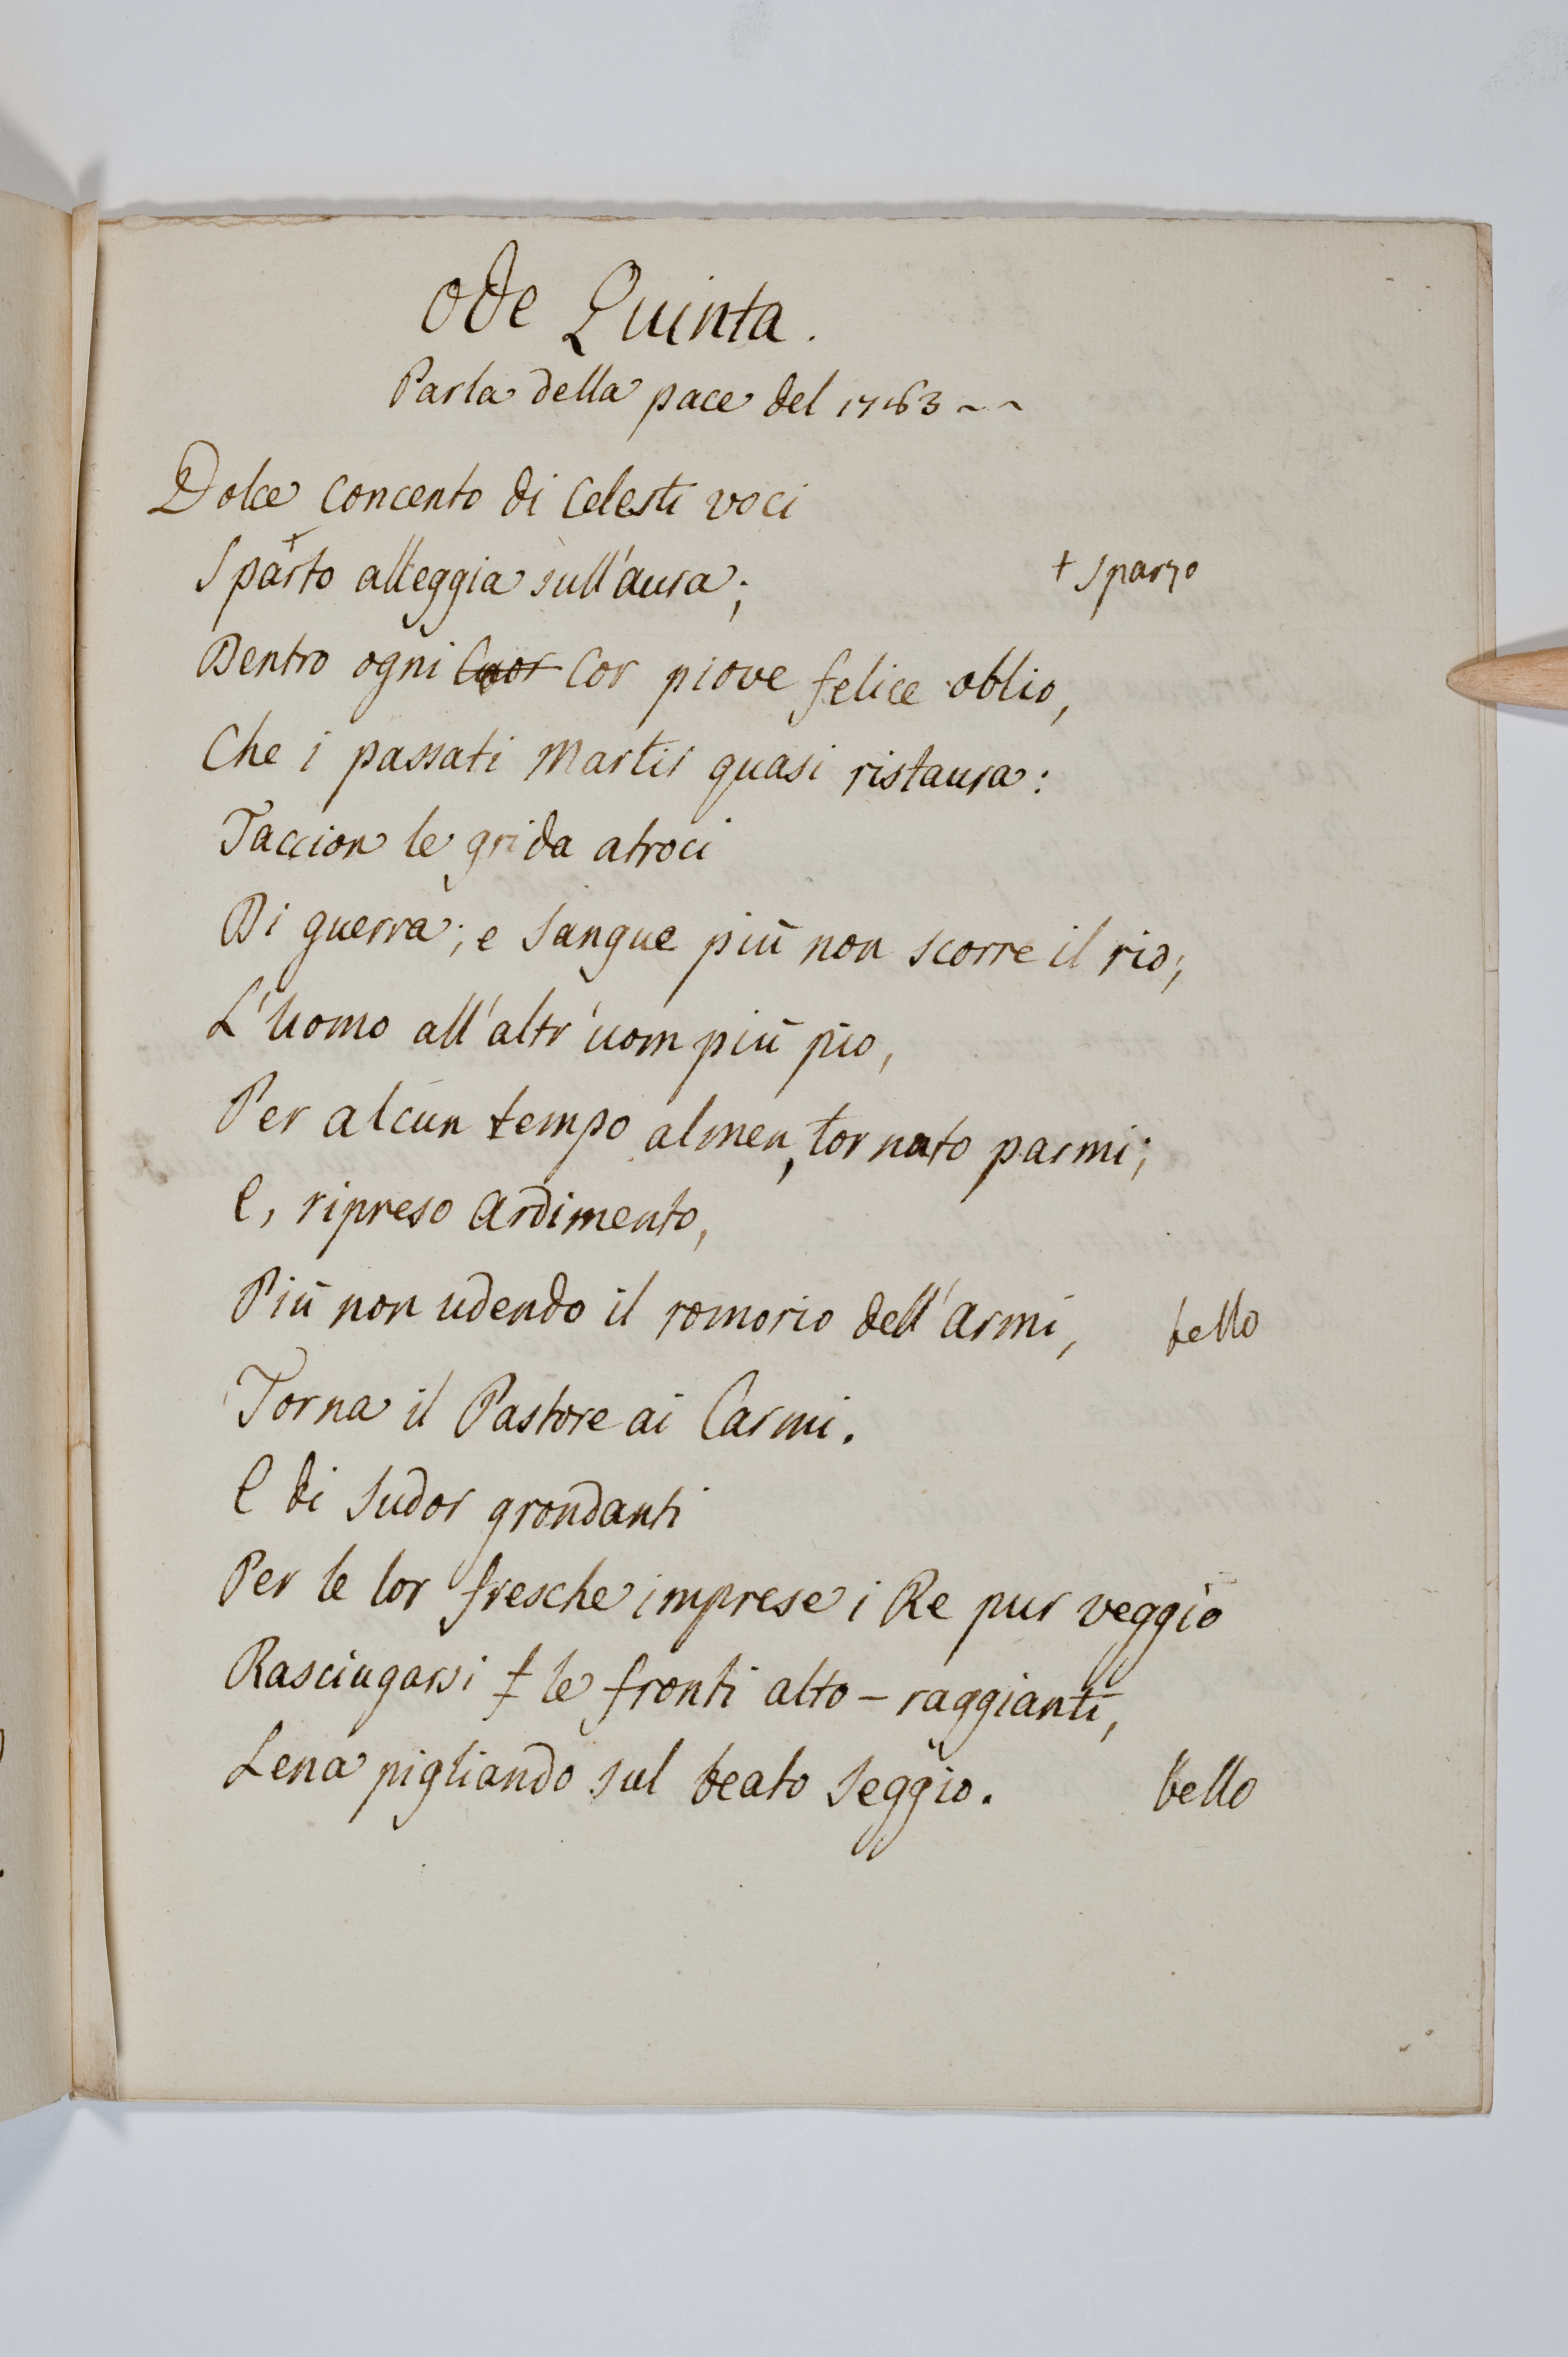 Ode Quinta.
Parla della pace del 1763 ~ ~
Dolce Concento di Celesti voci
Sparto alleggia sull'aura; + Sparzo
Dentro ogni Cuor Cor piove felice oblio,
Che i passati Martir quasi ristaura:
Taccion le grida atroci
Di guerra; e Sangue più non scorre il rio;
L'Uomo all'altr'uom più pio,
Per alcun tempo almen, tornato parmi;
E, ripreso Ardimento,
Più non udendo il romorio dell'Armi, bello
Torna il Pastore ai Carmi.
E di Sudor grondanti
Per le lor fresche imprese i Re pur veggio
Rasciugarsi le fronti alto-raggianti,
Lena pigliando sul beato Seggio. bello